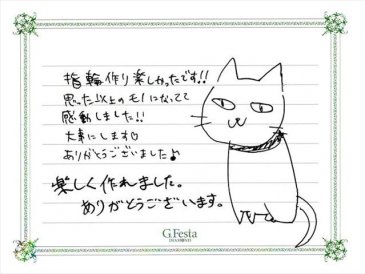 指輪作り楽しかったです!!
思った以上のモノになってて
感動しました!!
大事にします♡
ありがとうございました♪
楽しく作れました。
ありがとうございます。
G.Festa
DIAMOND